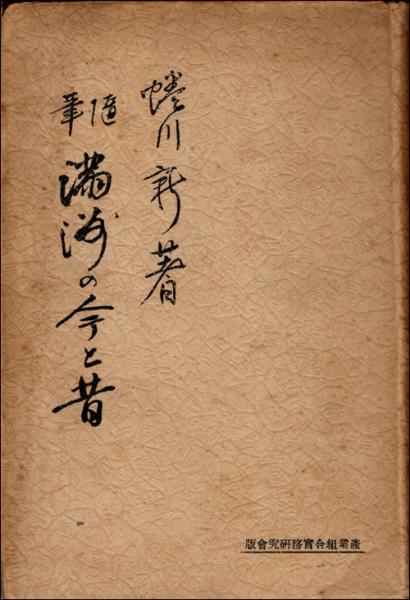 蜷川新著
随筆
満洲の今と昔
産業組合實務研究會版